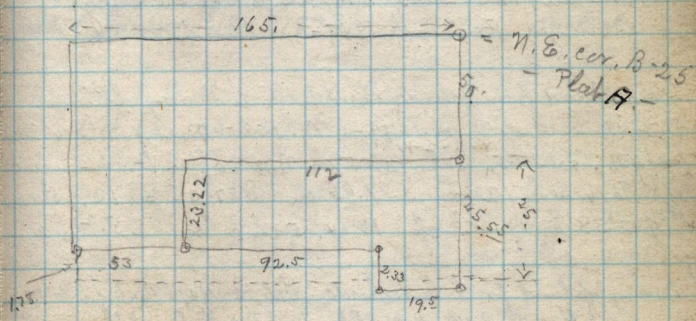 165.
= N. E. cor. B-25
- Plat A. -
50.
112
23.22
25.55
25.
53
92.5
2.33
19.5
1.75